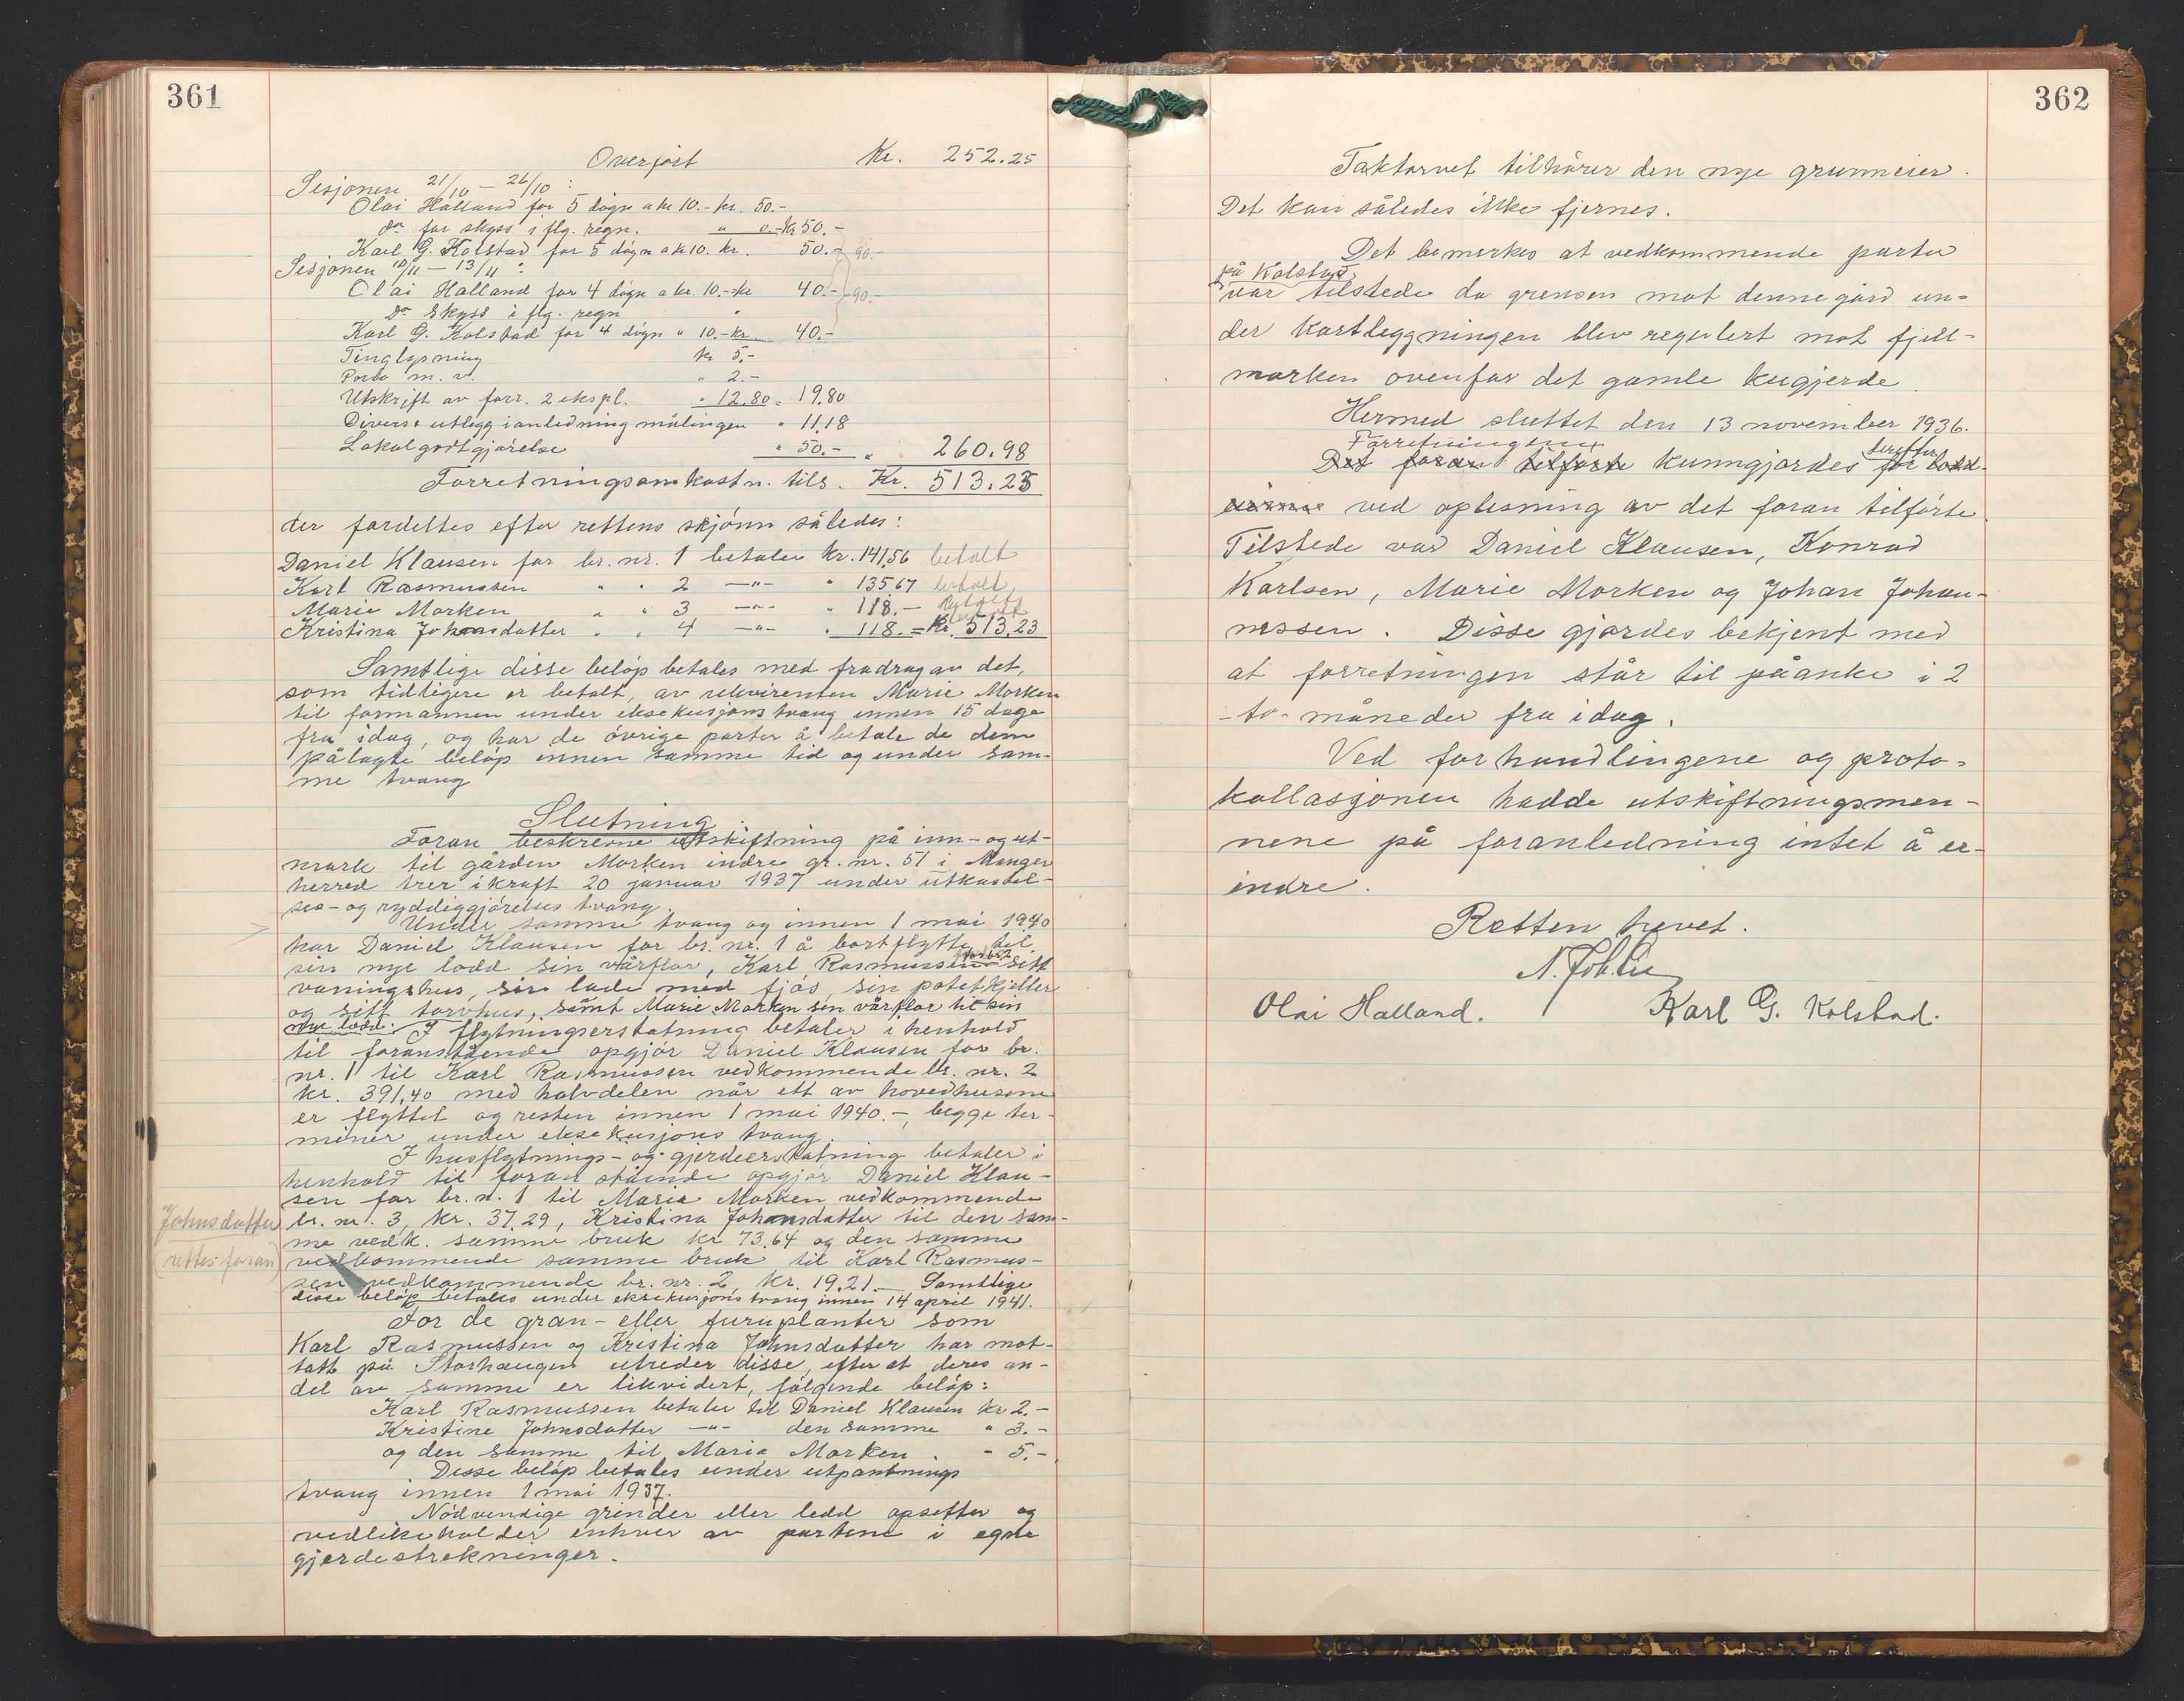 361
Overført Kr. 252.25
Sesjonen 21/10 – 26/10 :
Olai Halland for 5 døgn a kr 10.- kr. 50.-
do for skyss i flg. regn. " 0.- Kr 50.-
Karl G. Kolstad for 5 døgn a k 10. kr. 50.- 90.-
Sesjonen 10/11 – 13/11 :
Olai Halland for 4 døgn a kr. 10.- kr 40.- 90.-
Do Skyss i flg. regn "
Karl G. Kolstad for 4 døgn " 10.- kr 40.-
Tinglysning kr 5.-
Porto m. v. " 2.-
Utskrift av forr. 2 ekspl. " 12.80 = 19.80
Diverse utlegg i anledning målingen " 11.18
Lokalgodtgjørelse " 50.- " 260.98
Forretningsomkostn. tils. Kr. 513.23
der fordeltes efter rettens skjønn således:
Daniel Klausen for br. nr. 1 betaler kr. 141,56 betalt
Karl Rasmussen " " 2 —"— " 135,67 betalt
Marie Morken " " 3 —"— " 118.-
Kristina Johnsdatter " " 4 —"— " 118.- = Kr. 513,23
Samtlige disse beløp betales med fradrag av det,
som tidligere er betalt, av rekvirenten Marie Morken
til formannen under eksekusjons tvang innen 15 dage
fra idag, og har de øvrige parter å betale de dem
pålagte beløp innen samme tid og under sam-
me tvang
Slutning:
Foran beskrevne utskiftning på inn- og ut-
mark til gården Morken indre gr. nr. 51 i Manger
herred trer i kraft 20 januar 1937 under utkastel-
ses- og ryddiggjørelses tvang.
Under samme tvang og innen 1 mai 1940
har Daniel Klausen for br. nr. 1 å bortflytte til
sin nye lodd sin vårflor, Karl Rasmussen for br 2 sitt
våningshus, sin lade med fjøs, sin potetkjeller
og sitt torvhus, samt Marie Morken sin vårflor til sin
nye lodd. I flytningserstatning betaler i henhold
til foranstående opgjør Daniel Klausen for br.
nr. 1 til Karl Rasmussen vedkommende br. nr. 2
kr. 391,40 med halvdelen når ett av hovedhusene
er flyttet og resten innen 1 mai 1940.-, begge ter-
miner under eksekusjons tvang.
I husflytnings- og gjerdeerstatning betaler i
henhold til foran stående opgjør Daniel Klau-
sen for br. n. 1 til Marie Morken vedkommende
Johnsdatter br. nr. 3, kr. 37,29, Kristina Johansdatter til den sam-
me vedk. samme bruk kr 73,64 og den samme
(rettes foran) vedkommende samme bruk til Karl Rasmus-
sen vedkommende br. nr. 2 kr. 19,21.— Samtlige
disse beløp betales under eksekusjons tvang innen 14 april 1941.
For de gran- eller furuplanter som
Karl Rasmussen og Kristina Johnsdatter har mot-
tatt på Storhaugen utreder disse, efter at deres an-
del av samme er likvidert, følgende beløp:
Karl Rasmussen betaler til Daniel Klausen kr 2.-
Kristine Johnsdatter —"— den samme " 3.-
og den samme til Maria Morken. " 5.-
Disse beløp betales under utpantnings
tvang innen 1 mai 1937.
Nødvendige grinder eller ledd opsetter og
vedlikeholder enhver av partene i egne
gjerdestrekninger.
362
Taktorvet tilhører den nye grunneier.
Det kan således ikke fjernes.
Det bemerkes at vedkommende parter
på Kolstad
var tilstede da grensen mot denne gård un-
der kartleggningen blev regulert mot fjell-
marken ovenfor det gamle kugjerde.
Hermed sluttet den 13 november 1936.
Forretningen derefter
Det foran tilførte kunngjordes for lodd-
eierne ved oplesning av det foran tilførte.
Tilstede var Daniel Klausen, Konrad
Karlsen, Marie Morken og Johan Johan-
nessen. Disse gjordes bekjent med
at forretningen står til påanke i 2
-to- måneder fra idag.
Ved forhandlingene og proto-
kollasjonen hadde utskiftningsmen-
nene på foranledning intet å er-
indre.
Retten hevet.
Olai Halland. Karl G. Kolstad.